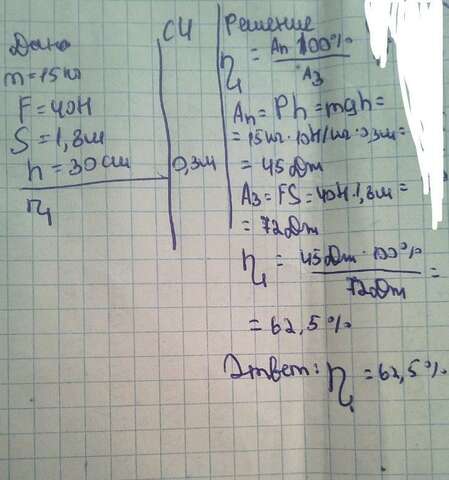 Дано
m=15кг
F=40Н
S=1,8м
h=30см
η
СИ
0,3м
Решение
η = Ап 100% / Аз
Ап=Ph=mgh=
=15кг·10Н/кг·0,3м=
=45Дж
Аз=FS=40Н·1,8м=
=72Дж
η = 45Дж·100% / 72Дж =
=62,5%
Ответ: η=62,5%